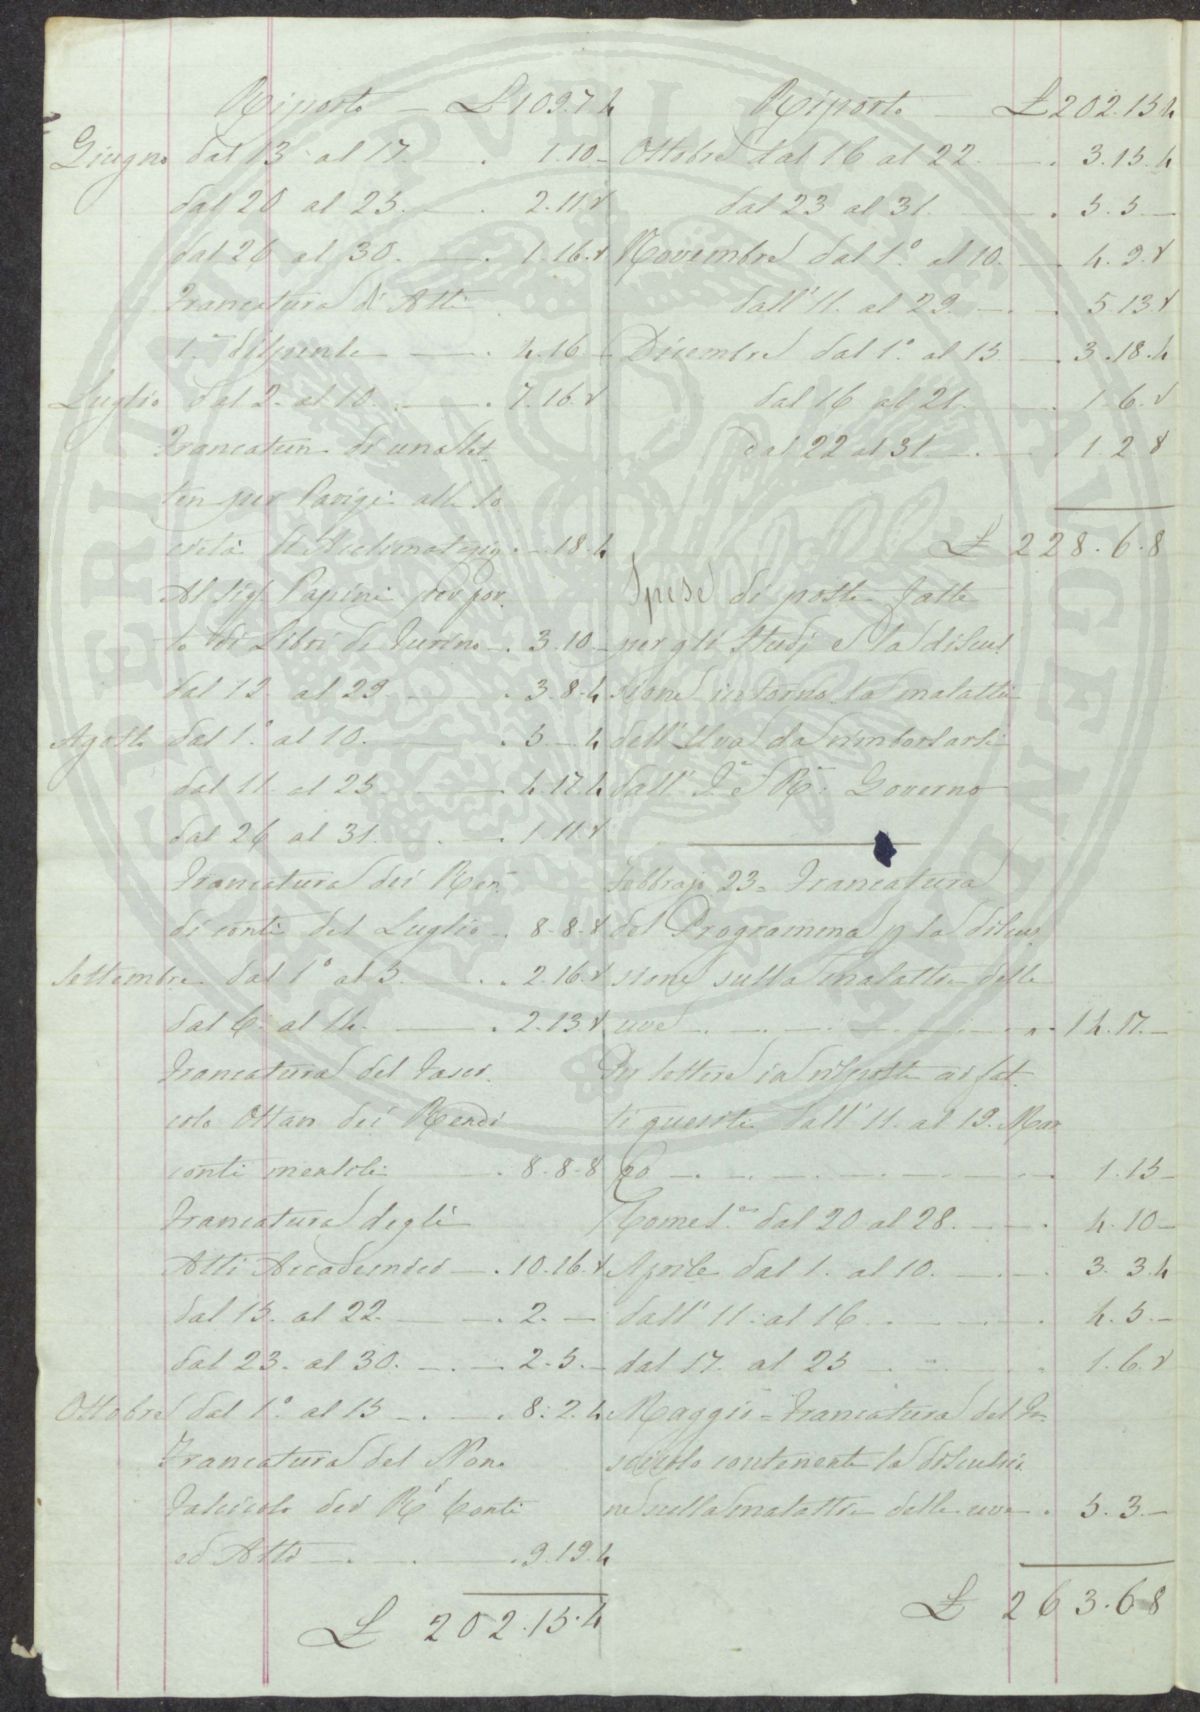 Riporto — £ 109.7.4
Giugno dal 13 al 17. — . 1.10 –
dal 20 al 25. — . 2.11.8
dal 26 al 30. — . 1.16.8
Francatura di Atti
— . 4.16 –
Luglio dal 2. al 10. — . 7.16.8
Francatura di una let-
tera per Parigi alla So
cietà d'Acclimataz. . — 18.4
Al Sig. Papini per por.
to di Libri di Turino — . 3.10 –
dal 12 al 29 — . 3.8.4
Agosto dal 1.° al 10. — . 5 — 4
dal 11 al 25 — . 4.17.4
dal 26 al 31. — . 1.11.8
Francatura dei Ren
di conti del Luglio — . 8.8.8
Settembre dal 1° al 5. — . 2.16.8
dal 6. al 14. — . 2.13.8
Francatura del Fasci.
colo Ottavo dei Rendi
conti mensili — . 8.8.8
Francatura degli
Atti Accademici — . 10.16.8
dal 15. al 22. — . 2. —
dal 23. al 30. — . — 2.5. –
Ottobre dal 1.° al 15 — . — . 8.2.4
Francatura del Nono
Fascicolo dei R.i Conti
ed Atti — . — . 9.19.4
£ 202.15.4
Riporto — £ 202.15.4
Ottobre dal 16 al 22. — . 3.15.4
dal 23 al 31. — . 5.5. —
Novembre dal 1.° al 10. — . 4.9.8
dall' 11. al 29. — . — 5.13.8
Dicembre dal 1.° al 15 — . 3.18.4
dal 16 al 21. — . 1.6.8
dal 22 al 31 — . — . 1.2.8
£ 228.6.8
Spese di posta fatte
per gli Studj e la discus
sione intorno la malattia
dell'Uva da rimborsarsi
dall' I. e R. Governo
Febbrajo 23 = Francatura
del Programma p la discus
sione sulla malattia delle
uve — . — . 14.17. —
Per lettere in risposta ai fat
ti quesiti dall' 11. al 19. Mar
zo — . — . 1.15 –
dal 20 al 28. — . 4.10 –
Aprile dal 1. al 10. — . — . 3.3.4
dall' 11. al 16. — . 4.5. –
dal 17. al 25 — . 1.6.8
Maggio = Francatura del Fa-
scicolo contenente la discussio
ne sulla malattia delle uve . 5.3. –
£ 263.6.8